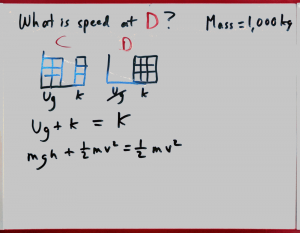 What is speed at D? Mass = 1,000 kg
C D
Ug K Ug K
Ug + K = K
mgh + ½mv² = ½mv²